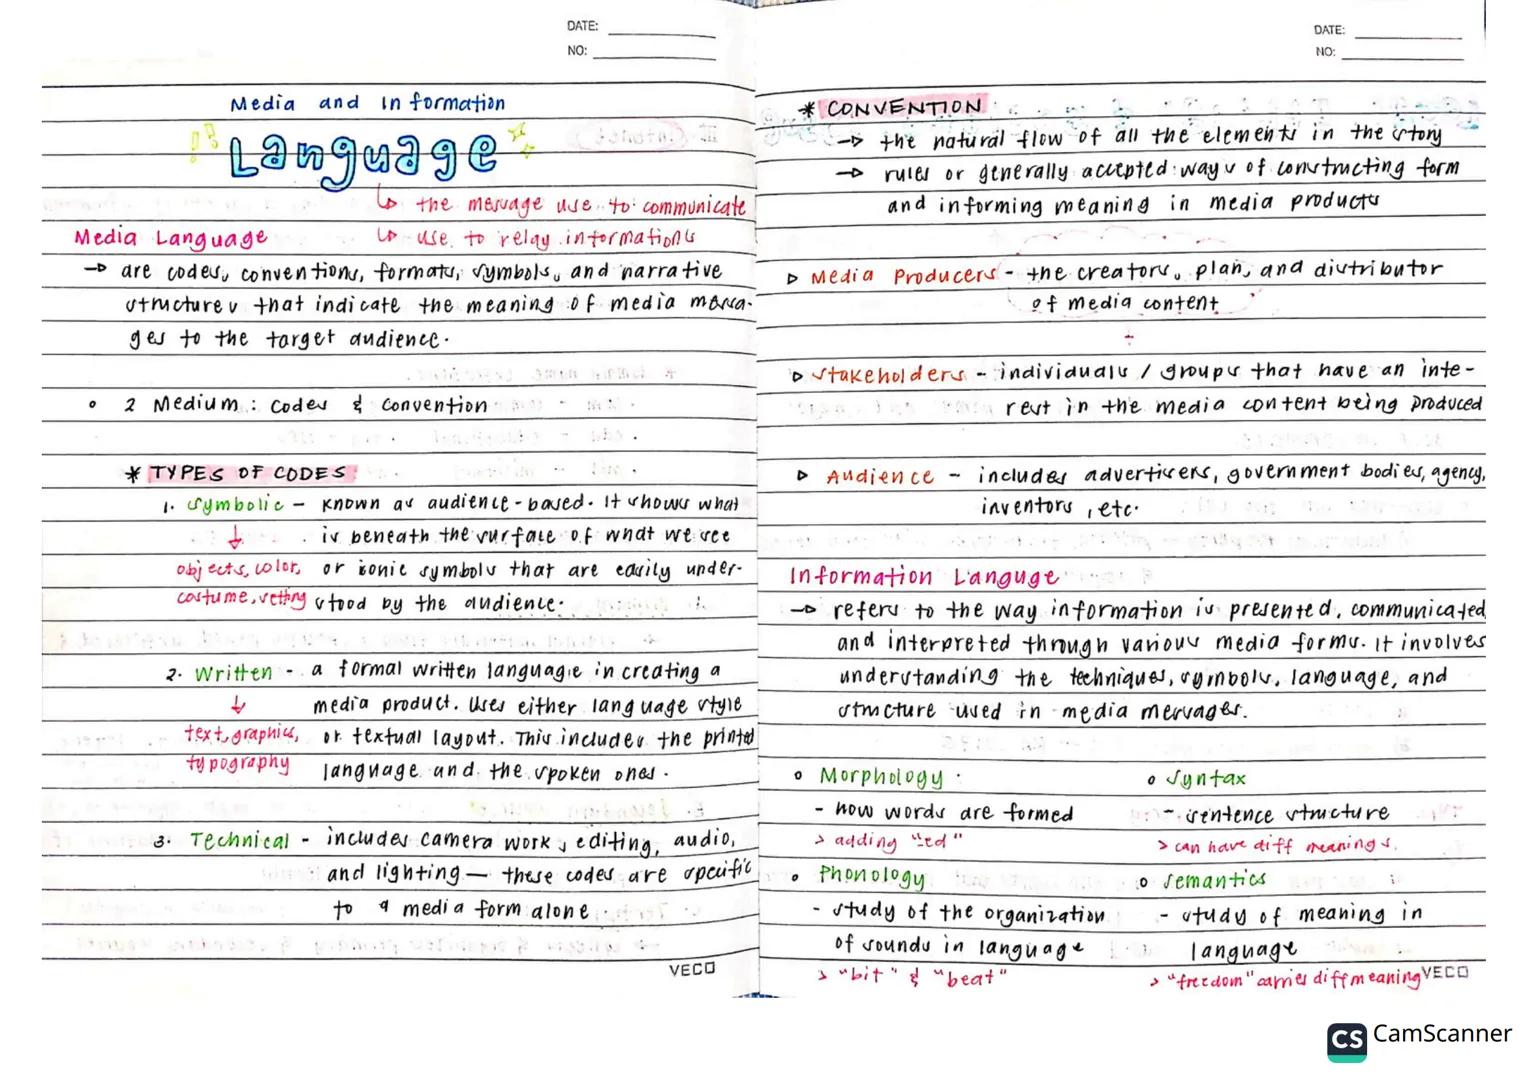 DATE:
NO:
Media and Information
Language
↳ the message use to communicate
Media Language
↳ use to relay informations
→ are codes, conventions, formats, symbols, and narrative
structures that indicate the meaning of media messa-
ges to the target audience.
∘ 2 Medium: Codes & Convention
* TYPES OF CODES
1. Symbolic - known as audience-based. It shows what
↓ is beneath the surface of what we see
objects, color, or iconic symbols that are easily under-
costume, setting stood by the audience.
2. Written - a formal written language in creating a
↓ media product. Uses either language style
text, graphics, or textual layout. This includes the printed
typography language and the spoken ones.
3. Technical - includes camera work, editing, audio,
and lighting — these codes are specific
to a media form alone
VECO
DATE:
NO:
* CONVENTION
→ the natural flow of all the elements in the story
→ rules or generally accepted ways of constructing form
and informing meaning in media products
▹ Media Producers - the creators, plan, and distributor
of media content
▹ Stakeholders - individuals / groups that have an inte-
rest in the media content being produced
▹ Audience - includes advertisers, government bodies, agency,
inventors, etc.
Information Languge
→ refers to the way information is presented, communicated
and interpreted through various media forms. It involves
understanding the techniques, symbols, language, and
structure used in media messages.
∘ Morphology:
- how words are formed
> adding "ed"
∘ Syntax
- sentence structure
> can have diff meanings.
∘ Phonology
- study of the organization
of sounds in language
> "bit" & "beat"
∘ Semantics
- study of meaning in
language
> "freedom" carries diff meaning
VECO
CS CamScanner